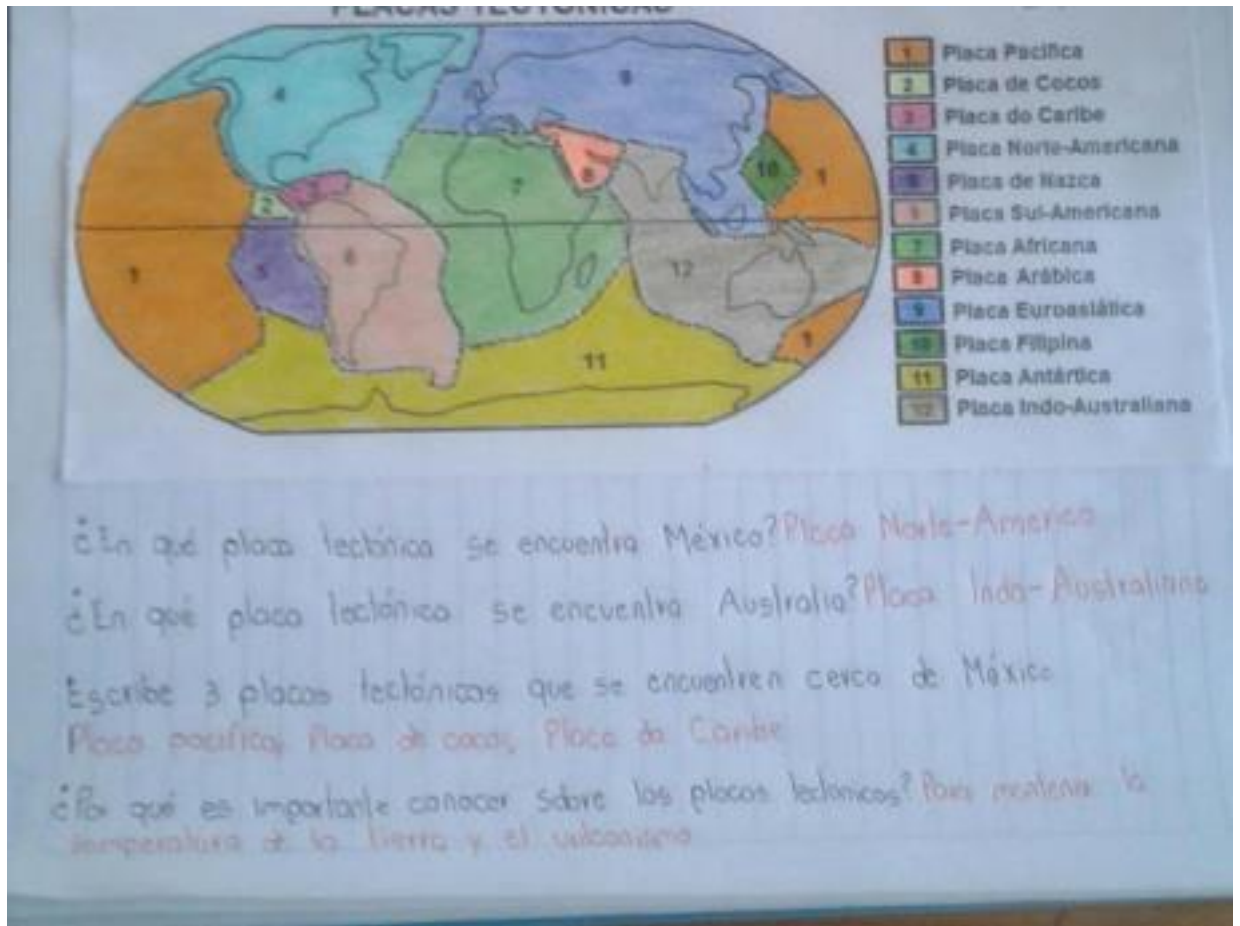 PLACAS TECTÓNICAS
1 Placa Pacífica
2 Placa de Cocos
3 Placa do Caribe
4 Placa Norte-Americana
5 Placa de Nazca
6 Placa Sul-Americana
7 Placa Africana
8 Placa Arábica
9 Placa Euroasiática
10 Placa Filipina
11 Placa Antártica
12 Placa Indo-Australiana
4
9
1
2
3
5
6
7
8
10
1
12
11
1
¿En qué placa tectónica se encuentra México? Placa Norte-America
¿En qué placa tectónica se encuentra Australia? Placa Indo-Australiana
Escribe 3 placas tectónicas que se encuentren cerca de México
Placa pacífica, Placa de cocos, Placa do Caribe
¿Por qué es importante conocer sobre las placas tectónicas? Para mantener la
temperatura de la tierra y el vulcanismo